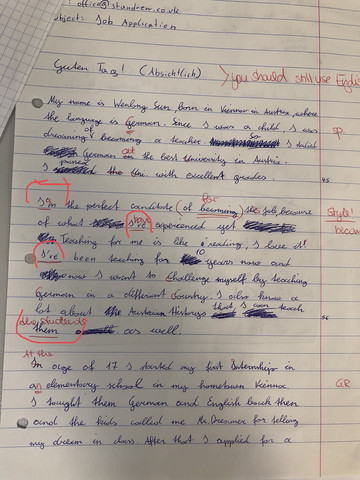 office@standrew.co.uk
Subject: Job Application
Guten Tag! (Absichtlich)
you should still use Englis
My name is Wenlong Sun, born in Vienna in Austria, where
the language is German. Since I was a child, I was
dreaming of becoming a teacher so I studied
German at the best University in Austria.
I passed the Uni with excellent grades.
I'm the perfect candidate of becoming for the job, because
of what I've experienced yet
Teaching for me is like reading, I love it!
I've been teaching for 10 years now and
now I want to challenge myself by teaching
German in a different Country. I also know a
lot about the Austrian History that, I can teach
the students
them as well.
At the
In age of 17 I started my first Internships in
an elementary school in my hometown Vienna
I taught them German and English back then
and the kids called me Mr. Dreamer for telling
my dream in class. After that I applied for a
sp
45
Style!
becom
96
GR